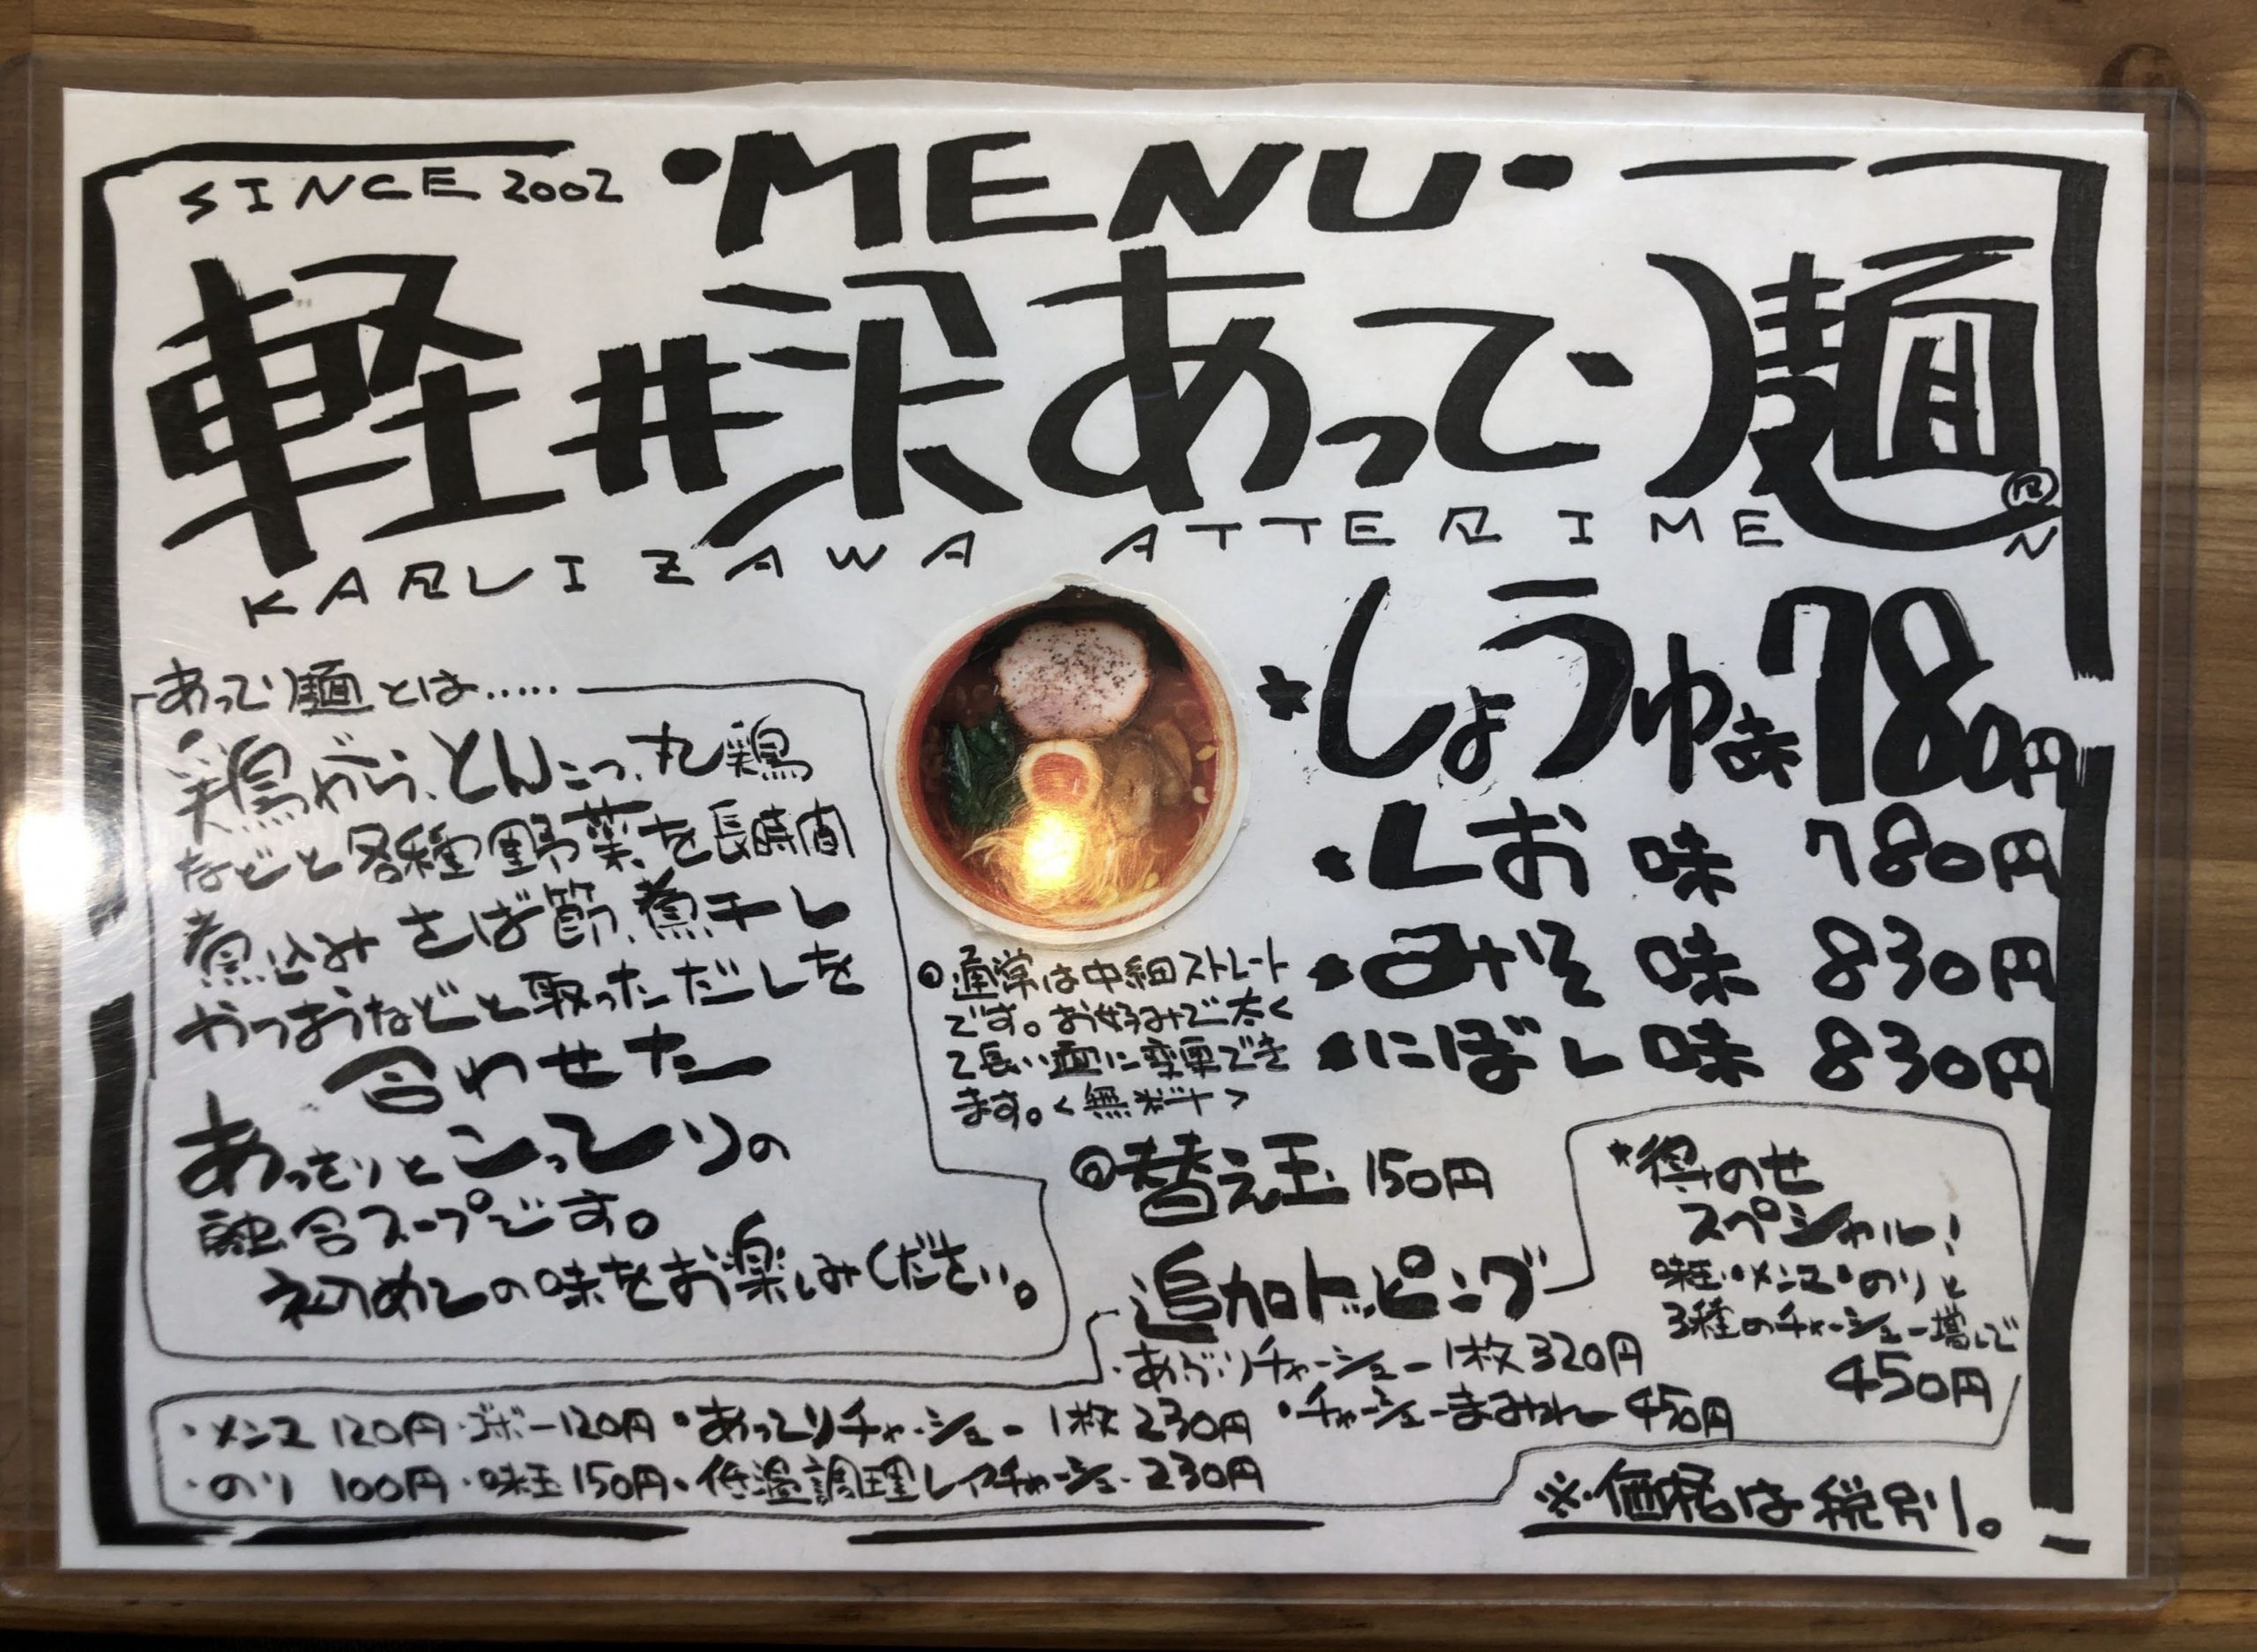 SINCE 2002
・MENU・
軽井沢あってり麺
KARUIZAWA ATTERIMEN
あってり麺とは……
鶏がら、とんこつ、丸鶏
などと各種野菜を長時間
煮込み さば節、煮干し
やつおうなどと取っただしを
合わせた
あっさりとこってりの
融合スープです。
初めての味をお楽しみください。
しょうゆ味 780円
・しお味 780円
・みそ味 830円
・にぼし味 830円
通常は中細ストレート
です。お好みで太く
て長い麺に変更でき
ます。<無料>
替え玉 150円
得のせ
スペシャル!
味玉・メンマ・のりと
3種のチャーシュー増しで
450円
追加トッピング
・あぶりチャーシュー 1枚 320円
・メンマ 120円 ・ゴボー 120円 ・あってりチャーシュー 1枚 230円 ・チャーシューまみれ 450円
・のり 100円 ・味玉 150円 ・低温調理レアチャーシュー 230円
※価格は税別。